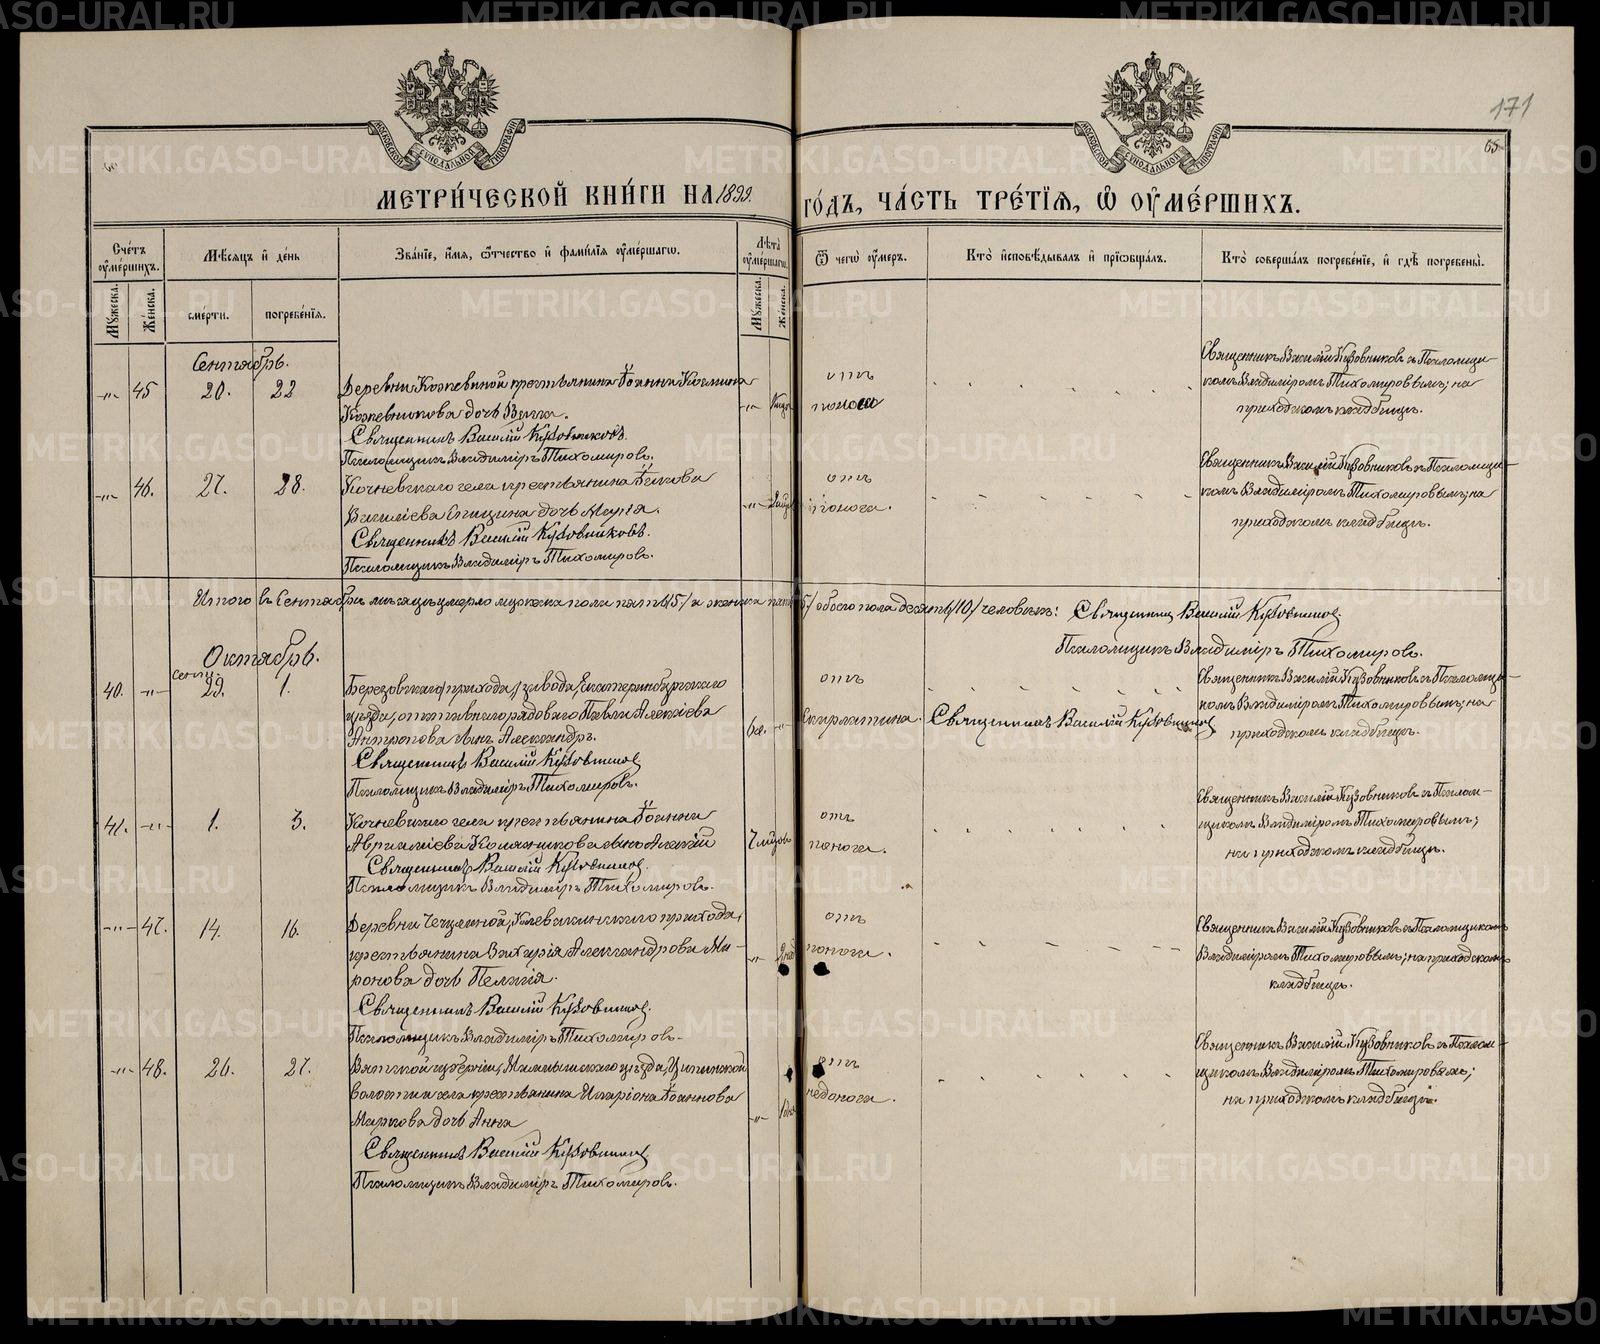 171
65
МОСКОВСКОЙ СѴНОДАЛЬНОЙ ТИПОГРАФІИ
МОСКОВСКОЙ СѴНОДАЛЬНОЙ ТИПОГРАФІИ
МЕТРИ́ЧЕСКОЙ КНИ́ГИ НА 1899 ГО́ДЪ, ЧА́СТЬ ТРЕ́ТІѦ, Ѡ҆ ОУ҆МЕ́РШИХЪ.
Сче́тъ оу҆ме́ршихъ.
Мѣ́сяцъ и҆ де́нь
Зва́ніе, и҆́мя, ѻ҆́тчество и҆ фами́лія оу҆ме́ршагѡ.
Лѣ́та оу҆ме́ршагѡ.
Ѿ чегѡ̀ оу҆́меръ.
Кто̀ и҆сповѣ́дывалъ и҆ прїѡбща́лъ.
Кто̀ соверша́лъ погребе́ніе, и҆ гдѣ̀ погребены̀.
Му́жеска.
Же́нска.
сме́рти.
погребе́нія.
Му́жеска.
Же́нска.
Сентябрь.
-"- 45 20. 22 Деревни Кожевиной крестьянина Іоанна Козмина
Кожевникова дочь Вѣра.
Священникъ Василій Кузовниковъ.
Псаломщикъ Владиміръ Тихомировъ.
отъ
поноса
Священникъ Василій Кузовниковъ съ Псаломщи-
комъ Владиміромъ Тихомировымъ; на
приходскомъ кладбищѣ.
-"- 46. 27. 28. Кочневскаго села крестьянина Іакова
Василіева Епицина дочь Марія.
Священникъ Василій Кузовниковъ.
Псаломщикъ Владиміръ Тихомировъ.
отъ
поноса.
Священникъ Василій Кузовниковъ съ Псаломщи-
комъ Владиміромъ Тихомировымъ; на
приходскомъ кладбищѣ.
Итого въ Сентябрѣ мѣсяцѣ умерло мужеска пола пять /5/ а женска пять /5/ обоего пола десять /10/ человѣкъ: Священникъ Василій Кузовниковъ.
Псаломщикъ Владиміръ Тихомировъ.
Октябрь.
Сент.
40. -"- 29. 1. Березовскаго прихода, завода, Екатеринбургскаго
уѣзда, отставнаго рядоваго Павла Алексіева
Антропова сынъ Александръ.
Священникъ Василій Кузовниковъ
Псаломщикъ Владиміръ Тихомировъ.
отъ
Скарлатина.
Священникъ Василій Кузовниковъ
Священникъ Василій Кузовниковъ съ Псаломщи-
комъ Владиміромъ Тихомировымъ; на
приходскомъ кладбищѣ.
41. -"- 1. 3. Кочневскаго села крестьянина Іоанна
Авраамієва Колясникова сынъ Алексій
Священникъ Василій Кузовниковъ.
Псаломщикъ Владиміръ Тихомировъ.
отъ
поноса.
Священникъ Василій Кузовниковъ съ Псалом-
щикомъ Владиміромъ Тихомировымъ;
на приходскомъ кладбищѣ.
-"- 47. 14. 16. Деревни Чечулиной, Клевакинскаго прихода,
крестьянина Захарія Александрова Ми-
ронова дочь Пелагія.
Священникъ Василій Кузовниковъ.
Псаломщикъ Владиміръ Тихомировъ.
отъ
поноса.
Священникъ Василій Кузовниковъ съ Псаломщикомъ
Владиміромъ Тихомировымъ; на приходскомъ
кладбищѣ.
-"- 48. 26. 27. Вятской губерніи, Малмыжскаго уѣзда, Ципьинской
волости и села крестьянина Иларіона Іоаннова
Маркова дочь Анна
Священникъ Василій Кузовниковъ
Псаломщикъ Владиміръ Тихомировъ.
отъ
недоноса.
Священникъ Василій Кузовниковъ съ Псалом-
щикомъ Владиміромъ Тихомировымъ;
на приходскомъ кладбищѣ.
METRIKI.GASO-URAL.RU